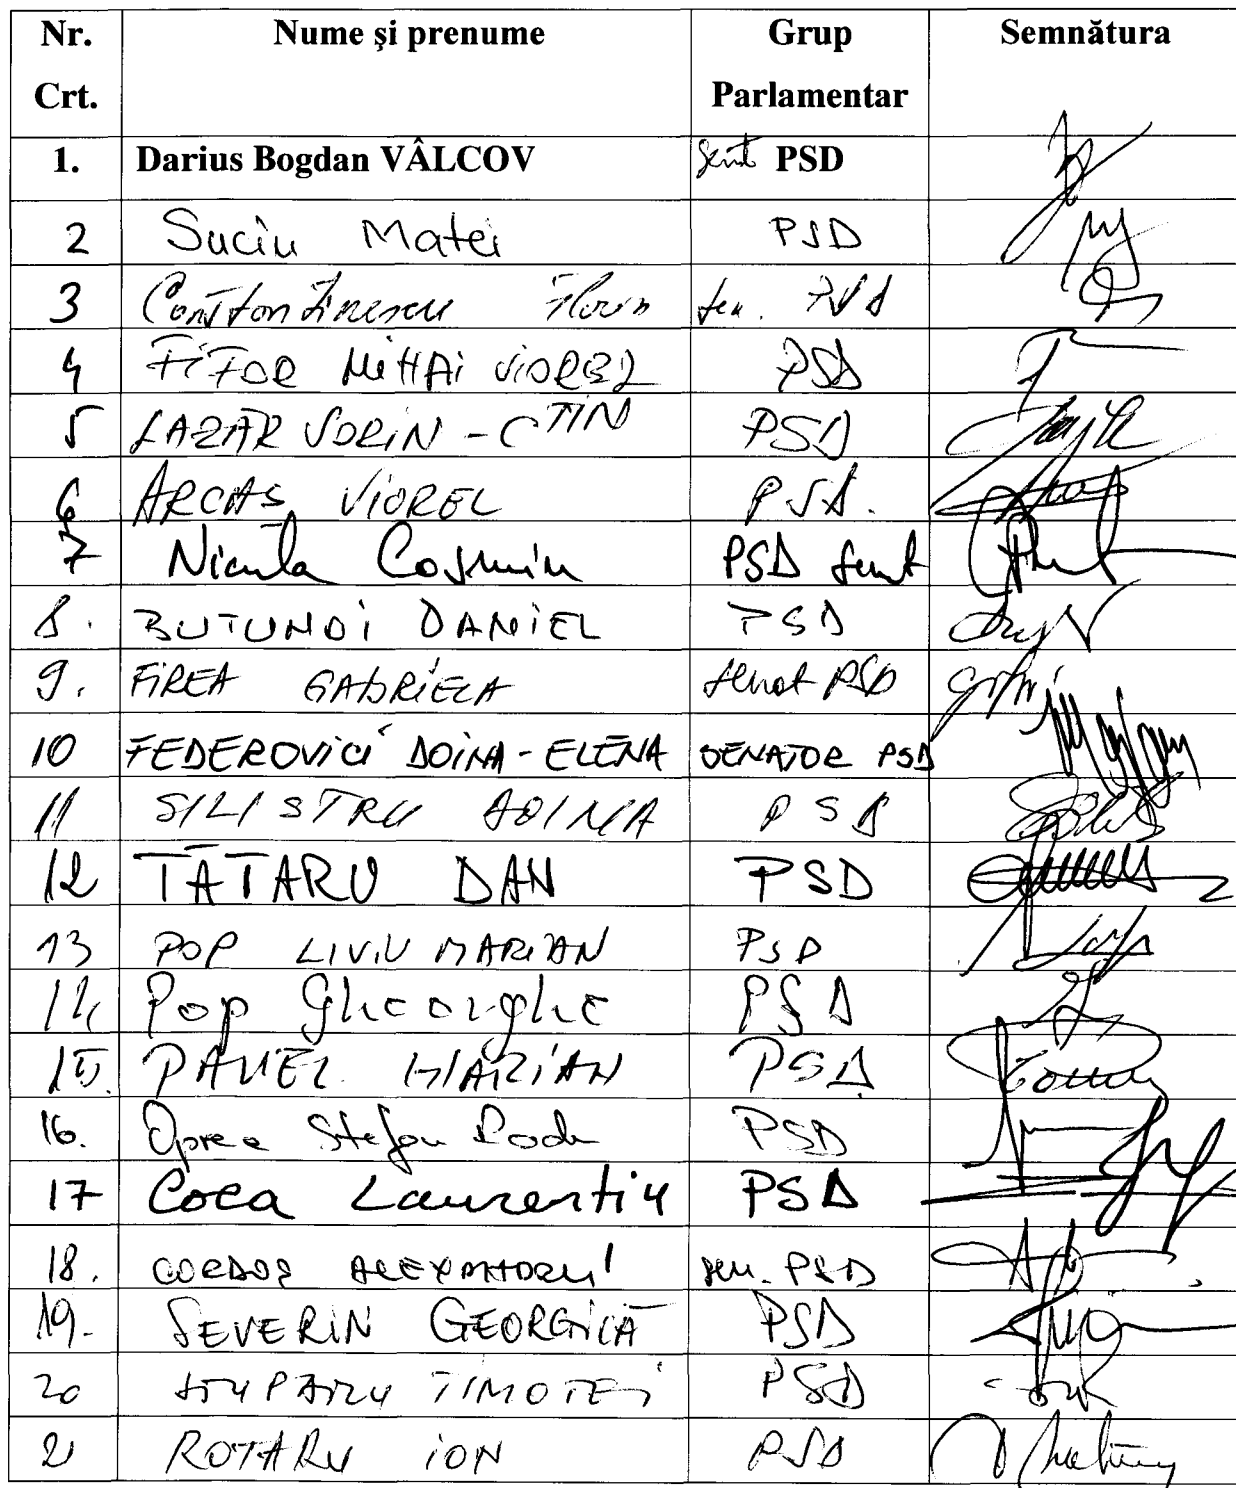 Nr. Crt. Nume și prenume Grup Parlamentar Semnătura
1. Darius Bogdan VÂLCOV PSD
2 Suciu Matei PSD
3 Constantinescu Florin sen. PSD
4 FIFOR MIHAI VIOREL PSD
5 LAZĂR SORIN - CTIN PSD
6 ARCAȘ VIOREL PSD.
7 Nicula Cosmin PSD
8. BUTUNOI DANIEL PSD
9. FIREA GABRIELA senat PSD
10 FEDEROVICI DOINA - ELENA SENATOR PSD
11 SILISTRU DOINA PSD
12 TĂTARU DAN PSD
13 POP LIVIU MARIAN PSD
14 Pop Gheorghe PSD
15. PAVEL MARIAN PSD
16. Oprea Stefan Radu PSD
17 Coca Laurentiu PSD
18. CORDOȘ ALEXANDRU sen. PSD
19. SEVERIN GEORGICĂ PSD
20 STUPARU TIMOTEI PSD
21 ROTARU ION PSD